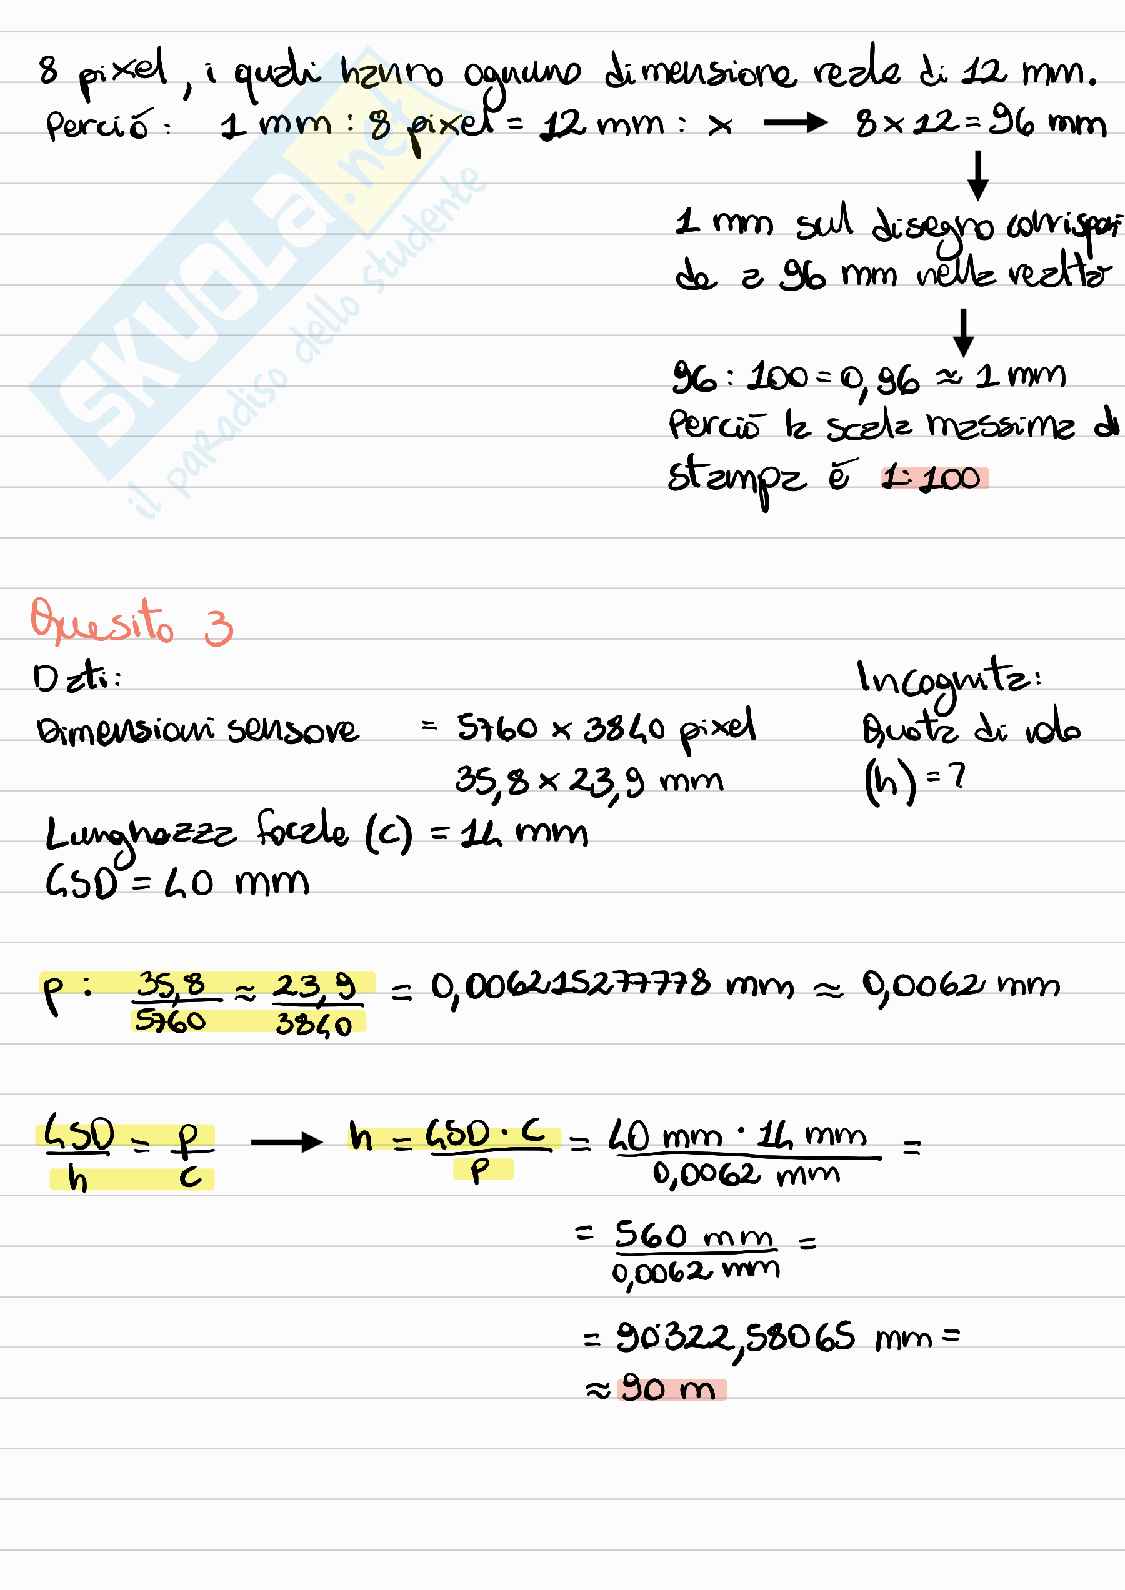 8 pixel, i quali hanno ognuno dimensione reale di 12 mm.
Perciò: 1 mm : 8 pixel = 12 mm : x → 8 x 12 = 96 mm
↓
1 mm sul disegno corrispon
de a 96 mm nella realtà
↓
96 : 100 = 0,96 ≈ 1 mm
Perciò la scala massima di
stampa è 1:100
SKUOLA.net
il paradiso dello studente
Quesito 3
Dati: Incognita:
Dimensioni sensore = 5760 x 3840 pixel Quota di volo
35,8 x 23,9 mm (h) = ?
Lunghezza focale (c) = 14 mm
GSD = 40 mm
p : 35,8/5760 ≈ 23,9/3840 = 0,006215277778 mm ≈ 0,0062 mm
GSD/h = p/c → h = GSD · c/p = 40 mm · 14 mm/0,0062 mm =
= 560 mm/0,0062 mm =
= 90'322,58065 mm =
≈ 90 m